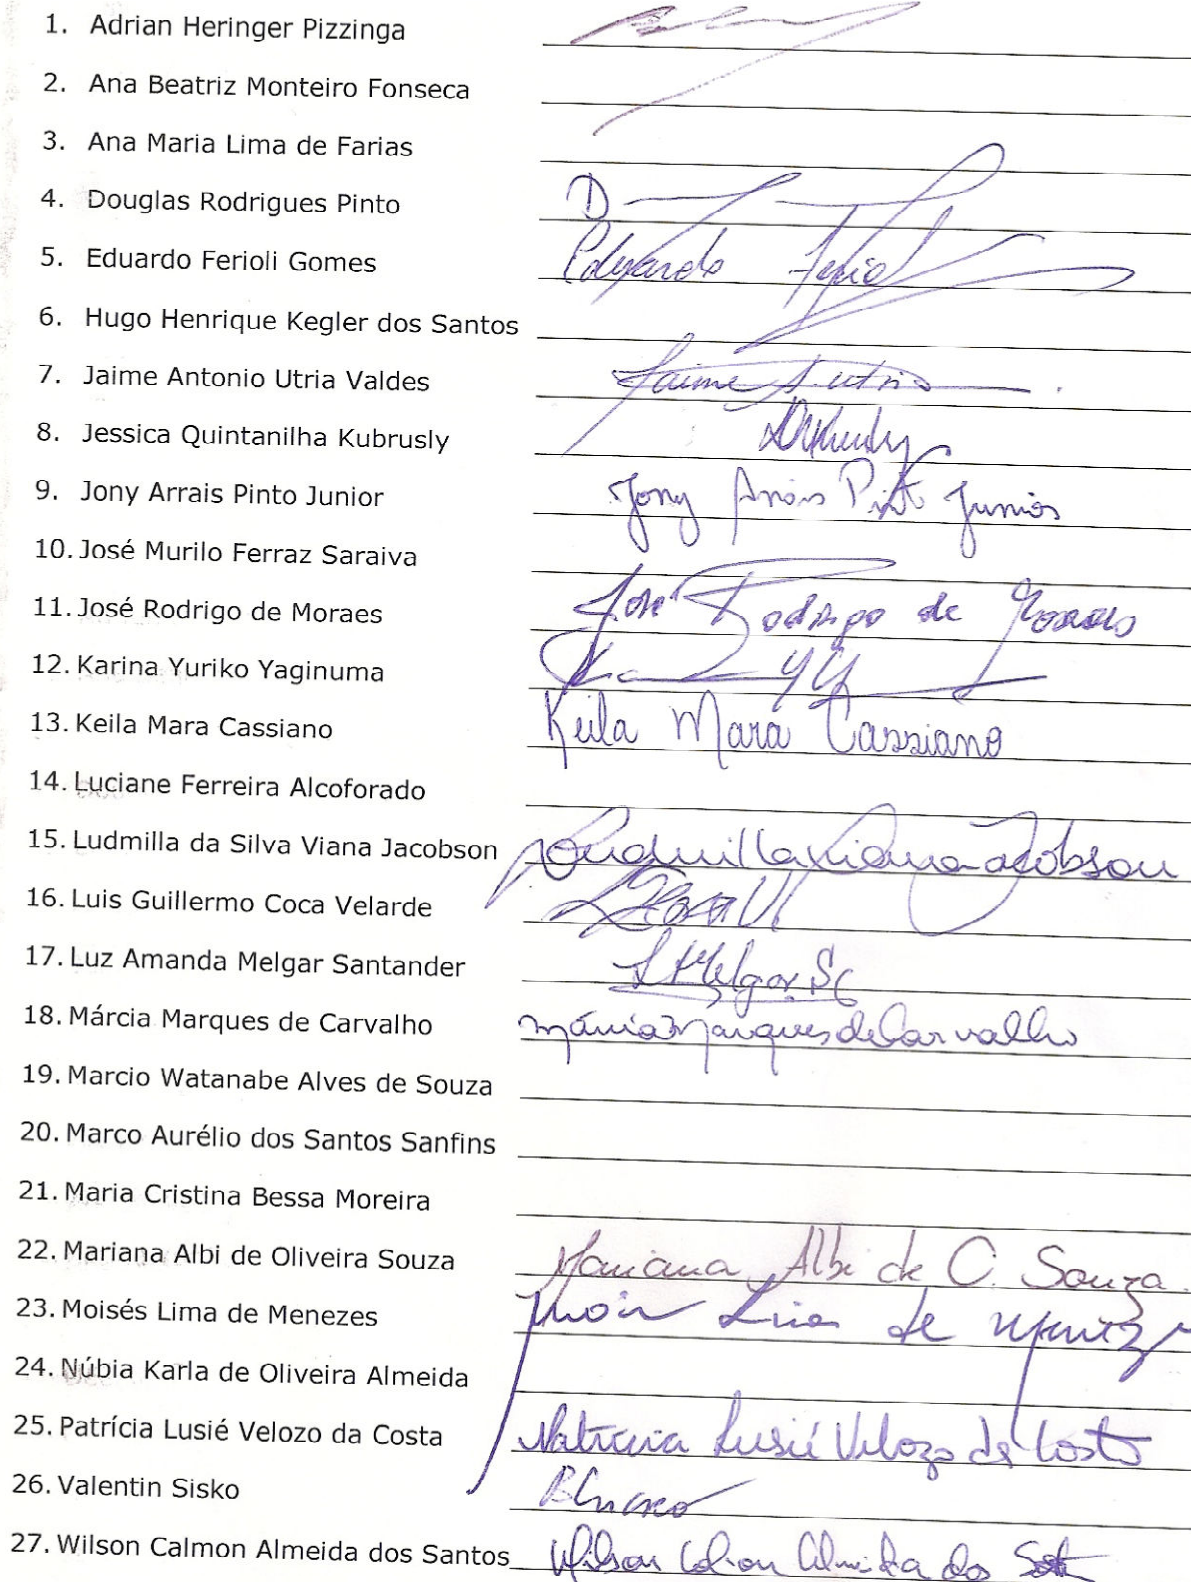 1. Adrian Heringer Pizzinga
2. Ana Beatriz Monteiro Fonseca
3. Ana Maria Lima de Farias
4. Douglas Rodrigues Pinto D
5. Eduardo Ferioli Gomes Eduardo Feriol
6. Hugo Henrique Kegler dos Santos
7. Jaime Antonio Utria Valdes Jaime A. Utria
8. Jessica Quintanilha Kubrusly
9. Jony Arrais Pinto Junior Jony Arrais Pinto Junior
10. José Murilo Ferraz Saraiva
11. José Rodrigo de Moraes José Rodrigo de Moraes
12. Karina Yuriko Yaginuma
13. Keila Mara Cassiano Keila Mara Cassiano
14. Luciane Ferreira Alcoforado
15. Ludmilla da Silva Viana Jacobson Ludmilla Viana Jacobson
16. Luis Guillermo Coca Velarde
17. Luz Amanda Melgar Santander L Melgar S
18. Márcia Marques de Carvalho Márcia Marques de Carvalho
19. Marcio Watanabe Alves de Souza
20. Marco Aurélio dos Santos Sanfins
21. Maria Cristina Bessa Moreira
22. Mariana Albi de Oliveira Souza Mariana Albi de O. Souza
23. Moisés Lima de Menezes Moisés Lima de Menezes
24. Núbia Karla de Oliveira Almeida
25. Patrícia Lusié Velozo da Costa Patrícia Lusié Velozo da Costa
26. Valentin Sisko
27. Wilson Calmon Almeida dos Santos Wilson Calmon Almeida dos Santos